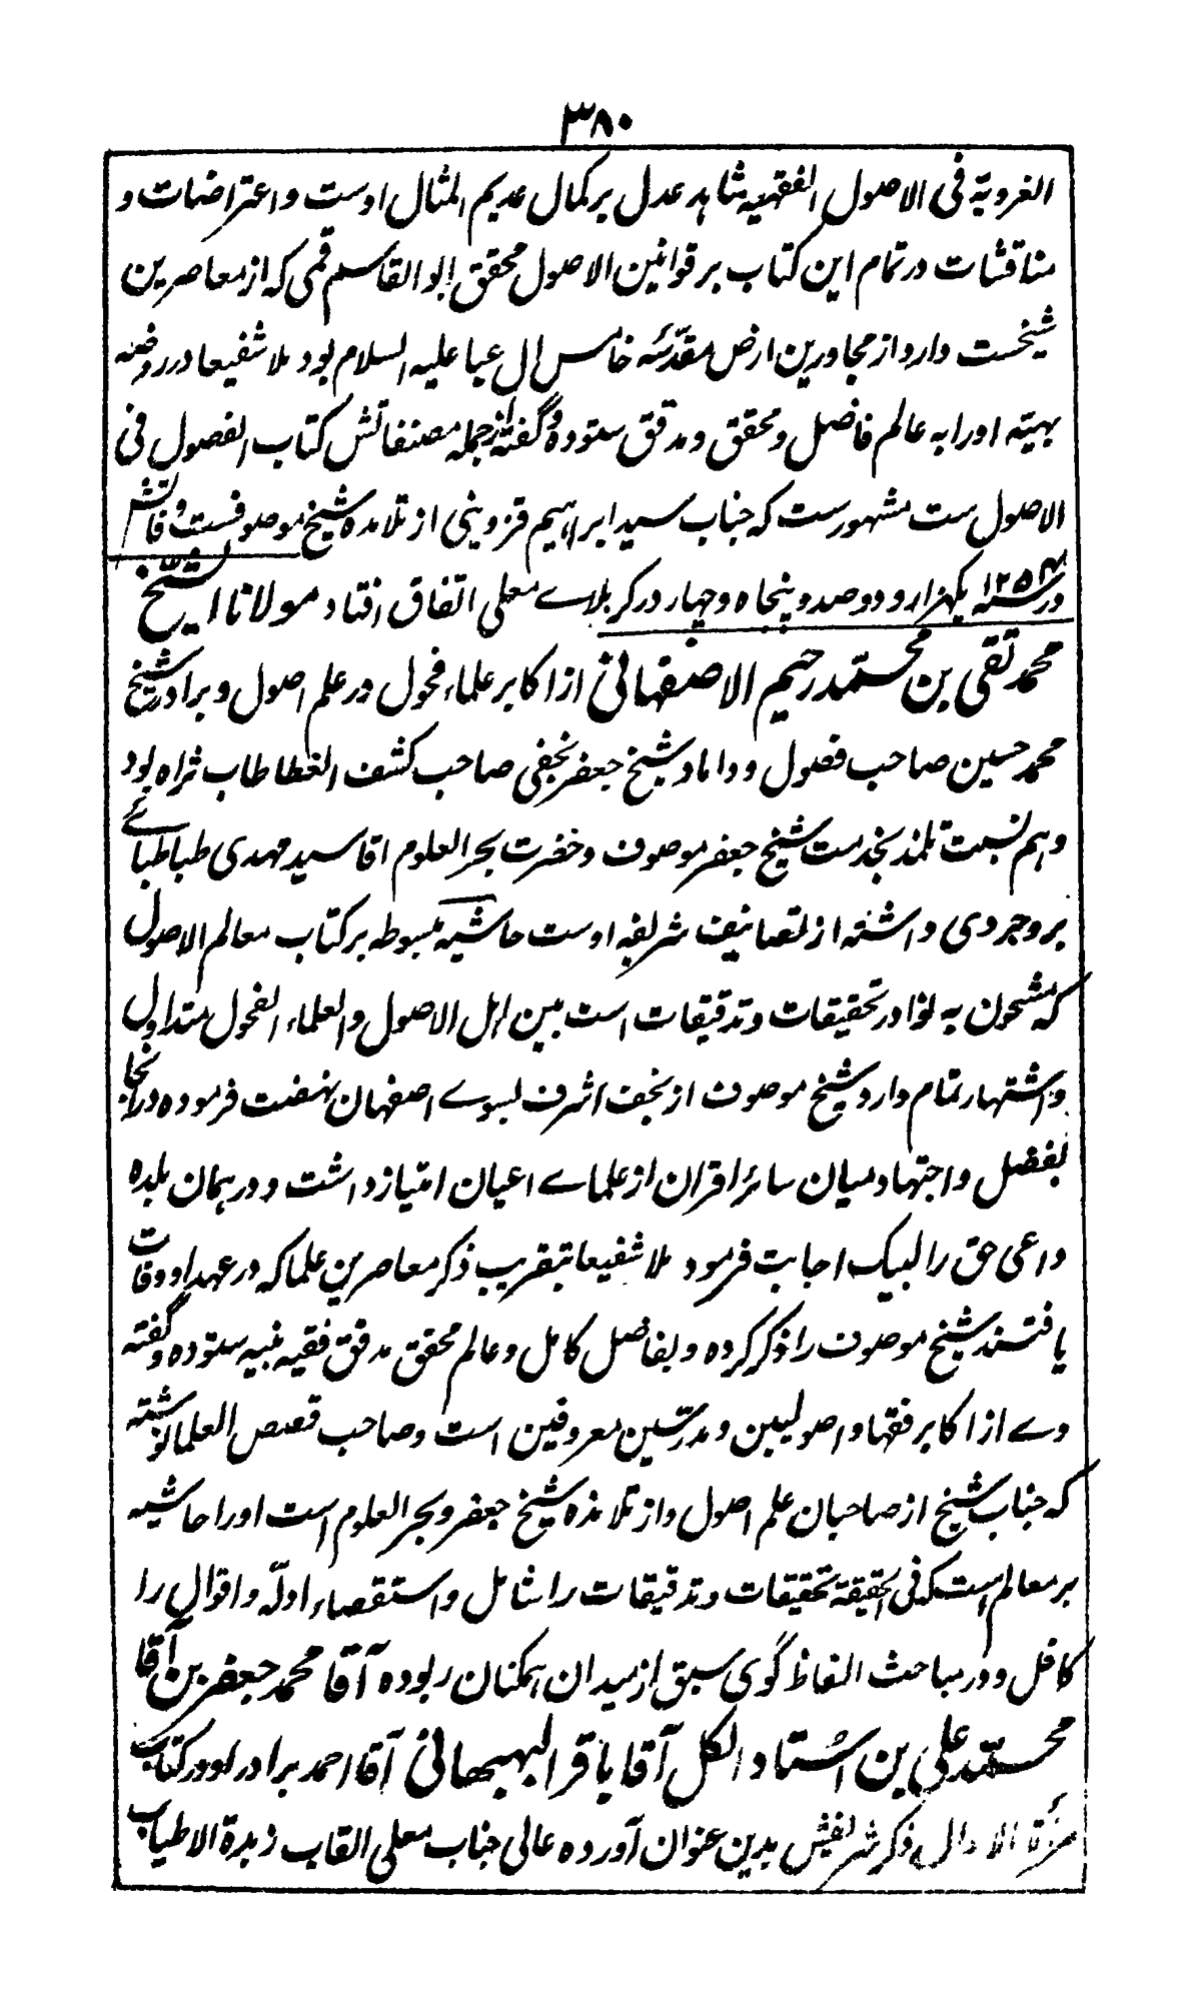 ۳۸۰
الغرویة فی الاصول الفقهیه شاهد عدل بر کمال عدیم المثال اوست و اعتراضات و
مناقشات در تمام این کتاب بر قوانین الاصول محقق ابو القاسم قمی که از معاصرین
شیخست دارد از مجاورین ارض مقدّسه خامس ال عبا علیه السلام بود ملا شفیعا در روضه
بهیّه او را به عالم فاضل و محقق و مدقق ستوده و گفته از جمله مصنفاتش کتاب الفصول فی
الاصول ست مشهورست که جناب سید ابراهیم قزوینی از تلامذه شیخ موصوفست وفاتش
در سنه ۱۲۵۴ یکهزار و دو صد و پنجاه و چهار در کربلاے معلی اتفاق افتاد مولانا الشیخ
محمد تقی بن محمّد رحیم الاصفهانی از اکابر علماء فحول در علم اصول و برادر شیخ
محمد حسین صاحب فصول و داماد شیخ جعفر نجفی صاحب کشف الغطا طاب ثراه بود
و هم نسبت تلمذ بخدمت شیخ جعفر موصوف و حضرت بحر العلوم اقا سید مهدی طباطبائے
بروجردی داشته از تصانیف شریفه اوست حاشیه مبسوطه بر کتاب معالم الاصول
که مشحون به نوادر تحقیقات و تدقیقات است بین اهل الاصول و العلماء الفحول متداول
و اشتهار تمام دارد شیخ موصوف از نجف اشرف بسوے اصفهان نهضت فرموده در انجا
بفضل و اجتهاد میان سائر اقران از علماے اعیان امتیاز داشت و در همان بلده
داعی حق را لبیک اجابت فرمود ملا شفیعا بتقریب ذکر معاصرین علما که در عهد او وفات
یافتند شیخ موصوف را ذکر کرده و بفاضل کامل و عالم محقق مدقق فقیه نبیه ستوده و گفته
وے از اکابر فقها و اصولیین و مدرّسین معروفین است و صاحب قصص العلما نوشته
که جناب شیخ از صاحبان علم اصول و از تلامذه شیخ جعفر و بحر العلوم است او را حاشیه
بر معالم است که فی الحقیقة تحقیقات و تدقیقات را شامل و استقصاء ادلّه و اقوال را
کافل و در مباحث الفاظ گوی سبق از میدان همکنان ربوده آقا محمد جعفر بن آقا
محمّد علی بن استاد الکل آقا باقر البهبهانی آقا احمد برادر او در کتاب
مرآة الاحوال ذکر شریفش بدین عنوان آورده عالی جناب معلی القاب زبدة الاطیاب